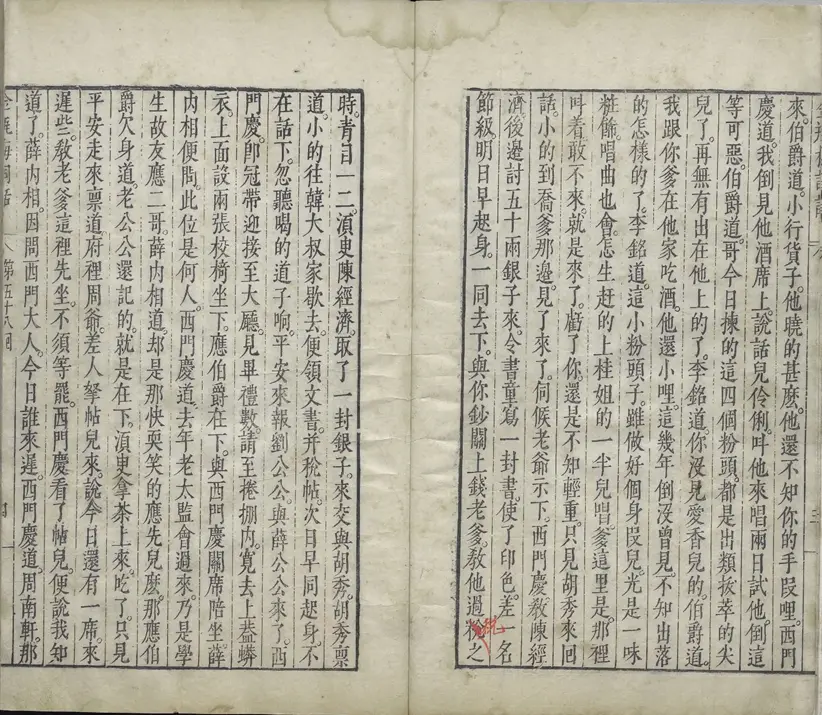 來。伯爵道。小行貨子。他曉的甚麽。他還不知你的手段哩。西門
慶道。我倒見他酒席上。說話兒伶俐。叫他來唱兩日試他。倒這
等可惡。伯爵道。哥今日揀的這四個粉頭。都是出類拔萃的尖
兒了。再無有出在他上的了。李銘道。你沒見愛香兒的。伯爵道。
我跟你爹在他家吃酒。他還小哩。這幾年倒沒曾見。不知出落
的怎樣的了。李銘道。這小粉頭子。雖做好個身段兒。光是一味
粧飾。唱曲也會。怎生赶的上桂姐的一半兒唱。爹這里是。那裡
叫着敢不來。就是來了。虧了你。還是不知輕重。只見胡秀來回
話。小的到喬爹那邊。見了來了。伺候老爺示下。西門慶敎陳經
濟後邊討五十兩銀子來。令書童寫一封書。使了印色。差一名
節級。明日早起身。一同去下。與你鈔關上錢老爹。敎他過稅之
時。青目一二。湏臾陳經濟。取了一封銀子。來交與胡秀。胡秀禀
道。小的往韓大叔家歇去。便領文書。并稅帖。次日早同起身。不
在話下。忽聽喝的道子响。平安來報劉公公。與薛公公來了。西
門慶。卽冠帶迎接至大廳。見畢禮數。請至捲棚内。寬去上葢蟒
衣。上面設兩張校椅坐下。應伯爵在下。與西門慶關席陪坐。薛
内相便問。此位是何人。西門慶道。去年老太監會過來。乃是學
生故友應二哥。薛内相道。却是那快耍笑的應先兒麽。那應伯
爵欠身道。老公公還記的。就是在下。湏臾拿茶上來。吃了。只見
平安走來禀道。府裡周爺。差人拏帖兒來。說今日還有一席。來
遲些。敎老爹這裡先坐。不須等罷。西門慶看了帖兒。便說我知
道了。薛内相。因問西門大人。今日誰來遲。西門慶道。周南軒。那
第五十八囘